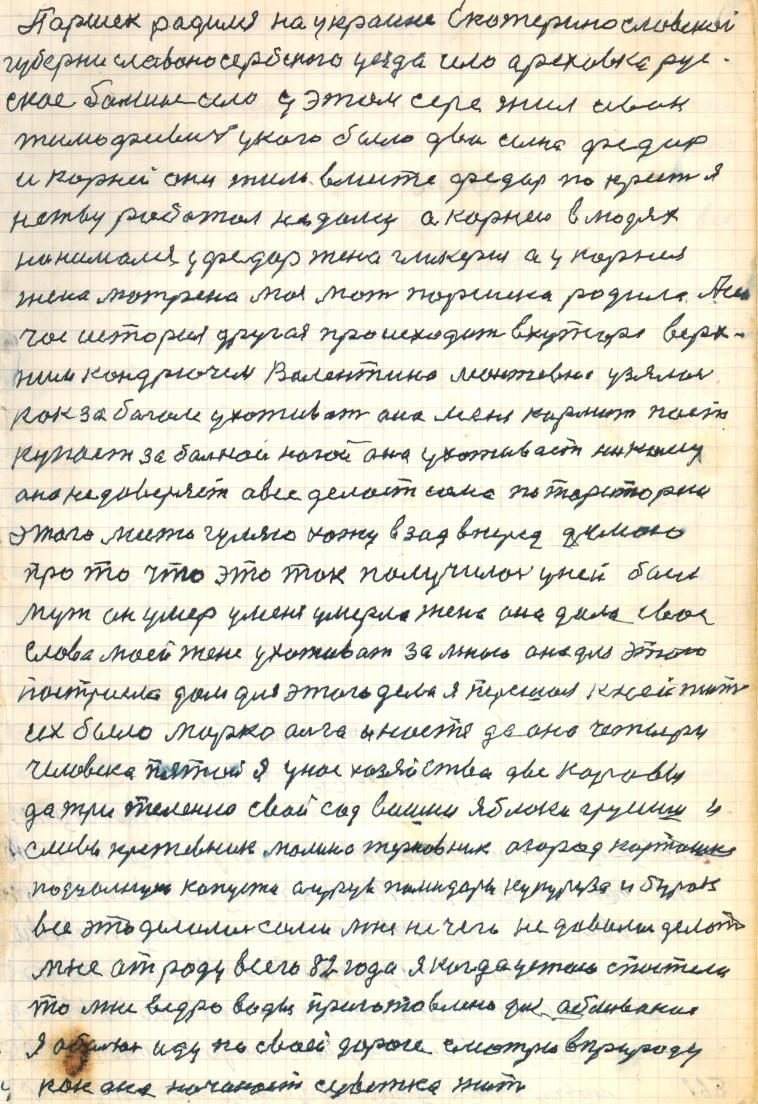 Паршек радился на украине Екотеринословской
губерни славоносербского уезда село ареховка рус-
ское бальшое село у этом селе жил иван
тимофеевич у кого было два сына федар
и карней они жили вмисте федар по крестя
нству работал на дому а карней в людях
нанимался у федар жена гликеря а у карния
жена мотрена моя мать паршика родила Сей
час история другая происходит вхуторе верх-
ним кондрючем Валентина леонтевна узялась
как за багом ухаживат она меня кормит паит
купает за балной ногой она ухаживает никому
она недоверяет а все делает сама по тəритории
этого места гуляю хожу в зад вперед думаю
про то что это так получилос уней был
муж он умер уменя умерла жена она дала свое
слова моей жене ухаживат за мною она для этого
построела дом для этого дела я перешол к ней жит
их было марко олга и настя да она четыри
человека пятой я унас хозяйства две каровы
да три теленка свой сад вишни яблоки груши и
сливы крежевник малина терновник агорад картошка
подсолнух капуста агурцы памидары кукуруза и бурак
все это делали сами мне не чего не давали делать
мне от роду всего 82 года я когда устаю с постели
то мне ведро воды приготовлено для обливания
Я обалюс иду по своей дороге смотрю вприроду
как она начинает суветка жит